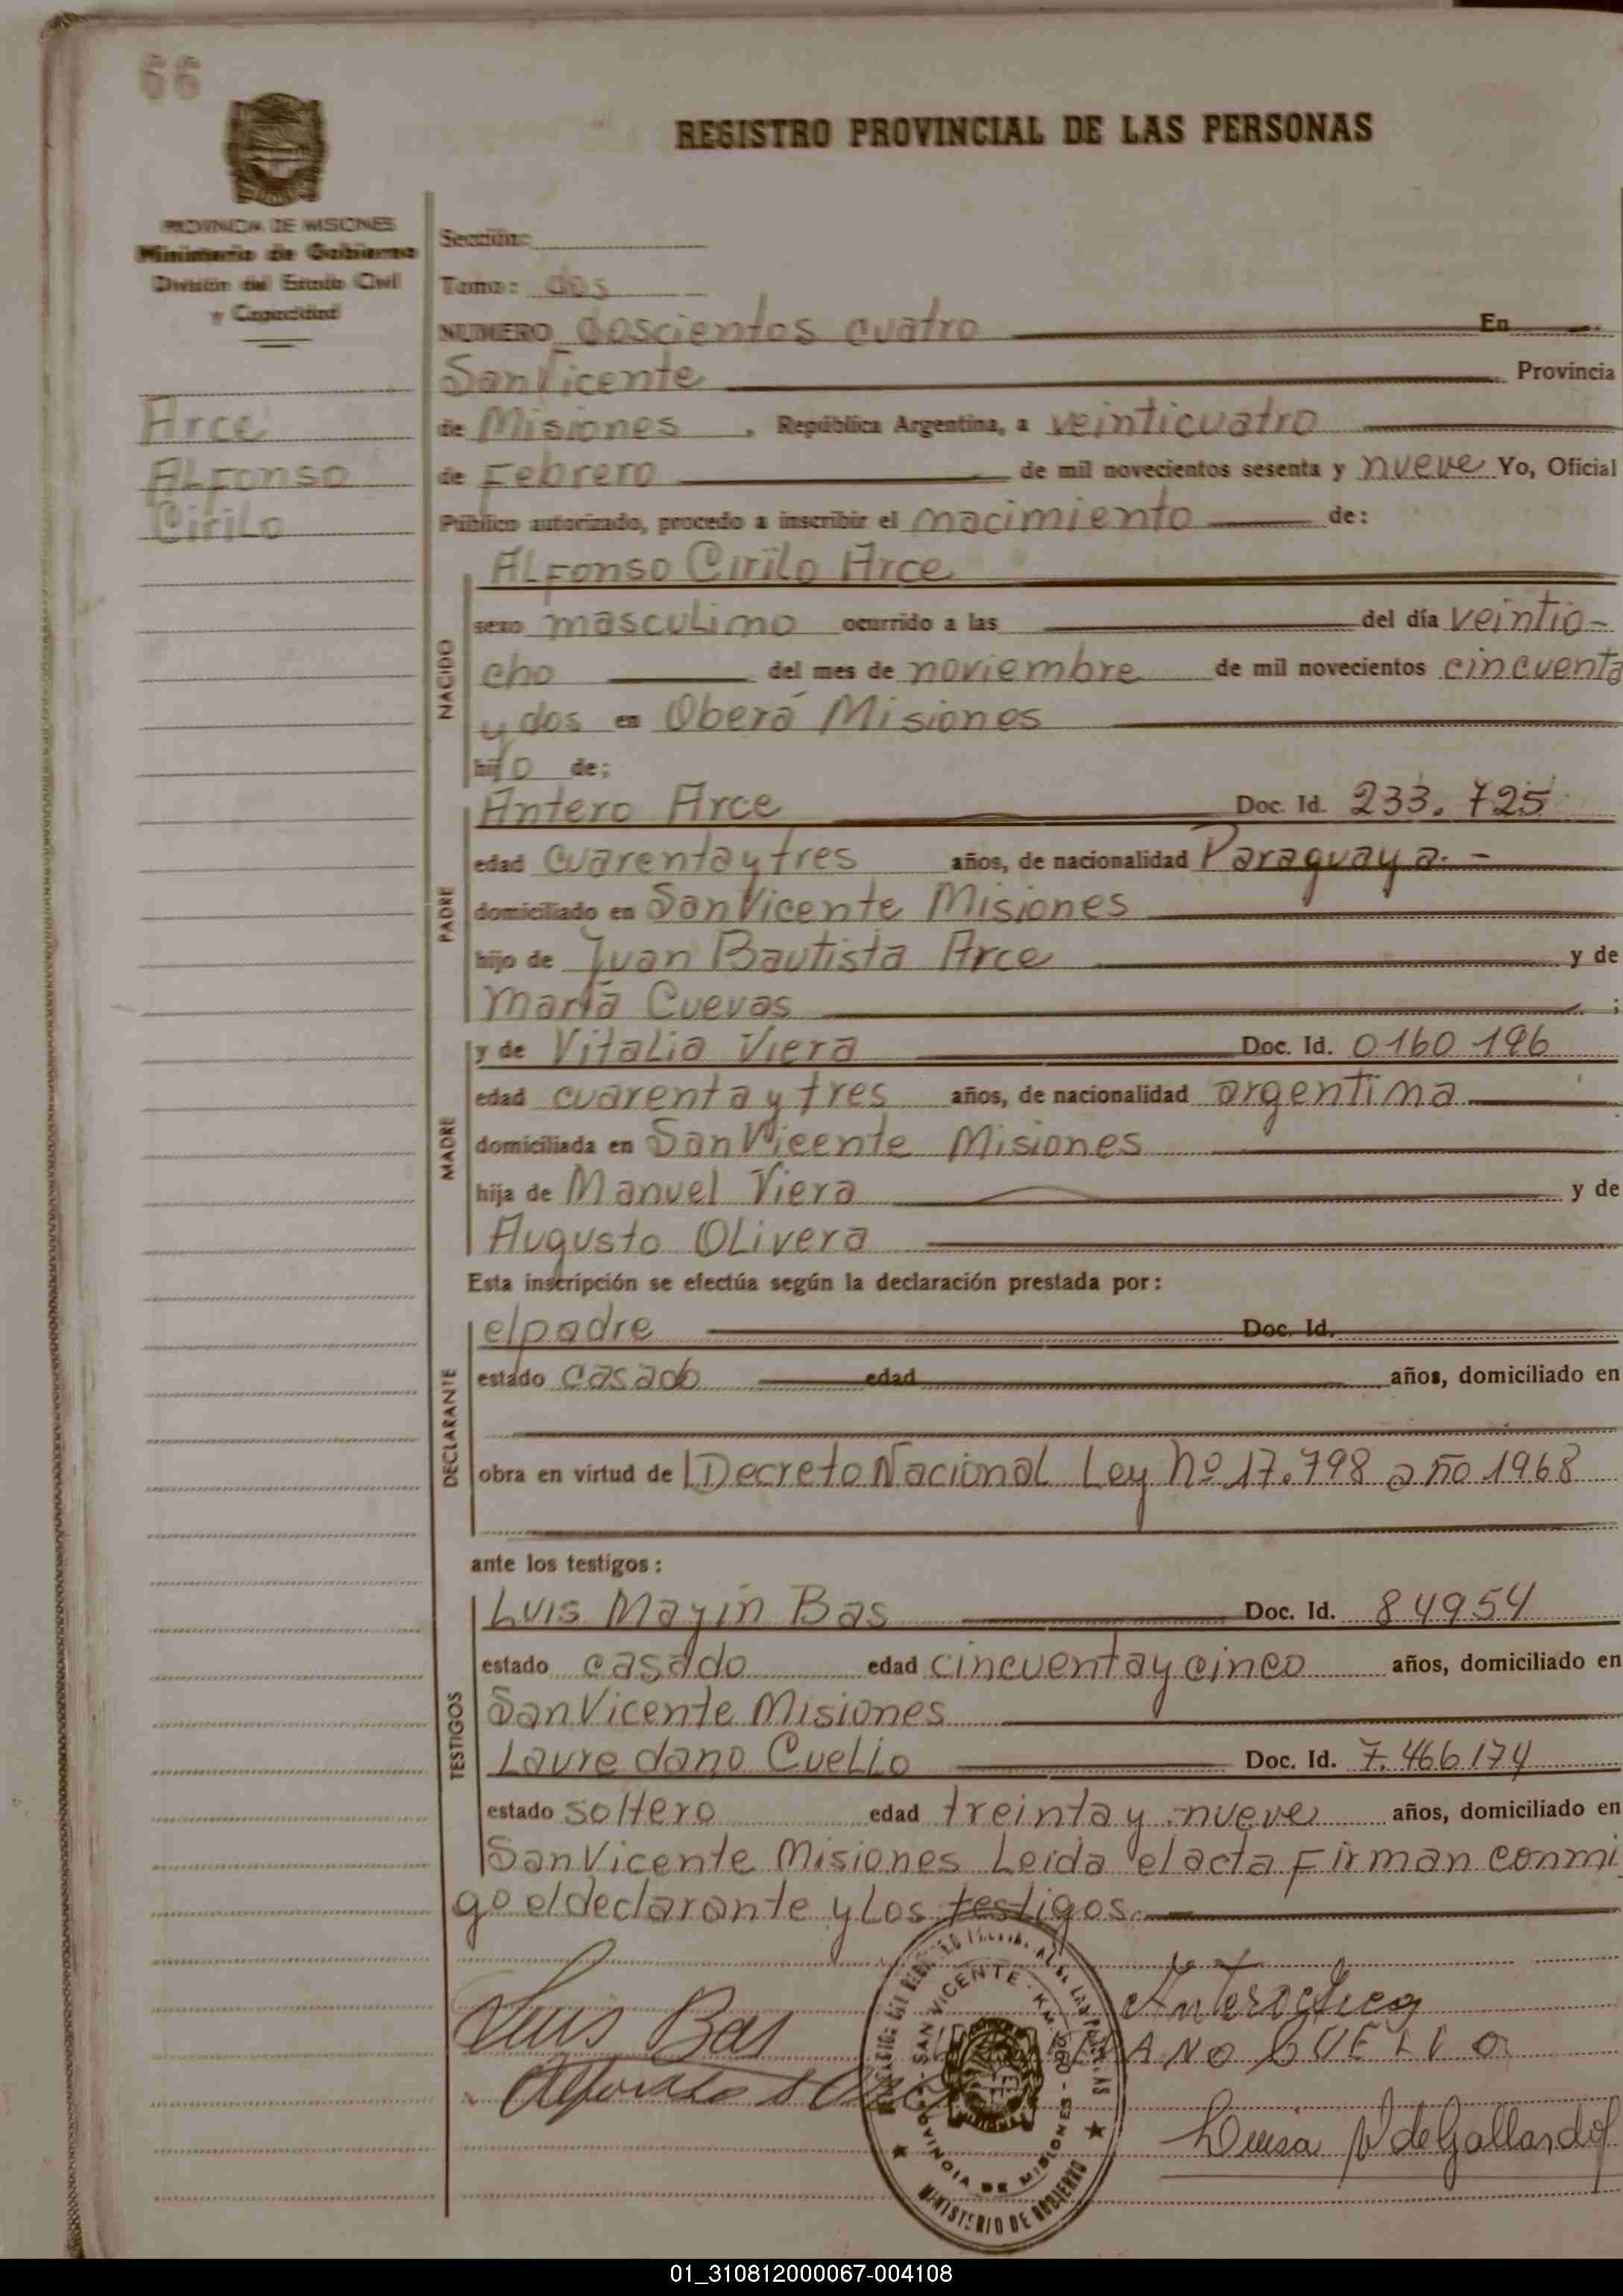 66
REGISTRO PROVINCIAL DE LAS PERSONAS
PROVINCIA DE MISIONES
Ministerio de Gobierno
División del Estado Civil
y Capacidad
Arce
Alfonso
Cirilo
Sección:
Tomo: dos
NUMERO doscientos cuatro En
San Vicente Provincia
de Misiones, República Argentina, a veinticuatro
de Febrero de mil novecientos sesenta y nueve Yo, Oficial
Público autorizado, procedo a inscribir el nacimiento de:
NACIDO
Alfonso Cirilo Arce
sexo masculino ocurrido a las del día veintio-
cho del mes de noviembre de mil novecientos cincuenta
y dos en Oberá Misiones
hijo de;
PADRE
Antero Arce Doc. Id. 233.725
edad cuarenta y tres años, de nacionalidad Paraguaya.-
domiciliado en San Vicente Misiones
hijo de Juan Bautista Arce y de
María Cuevas ;
MADRE
y de Vitalia Viera Doc. Id. 0160196
edad cuarenta y tres años, de nacionalidad argentina
domiciliada en San Vicente Misiones
hija de Manuel Viera y de
Augusto Olivera
Esta inscripción se efectúa según la declaración prestada por:
DECLARANTE
el padre Doc. Id.
estado casado edad años, domiciliado en
obra en virtud de Decreto Nacional Ley Nº 17.798 año 1968
ante los testigos:
TESTIGOS
Luis Mayín Bas Doc. Id. 84954
estado casado edad cincuenta y cinco años, domiciliado en
San Vicente Misiones
Lauredano Cuello Doc. Id. 7.466174
estado soltero edad treinta y nueve años, domiciliado en
San Vicente Misiones Leida el acta Firman conmi
go el declarante y los testigos.
Luis Bas
Antero Arce
ANO CUELLO
Luisa V de Gallardo
SAN VICENTE - KM.
PROVINCIA DE MISIONES
MINISTERIO DE GOBIERNO
01_310812000067-004108